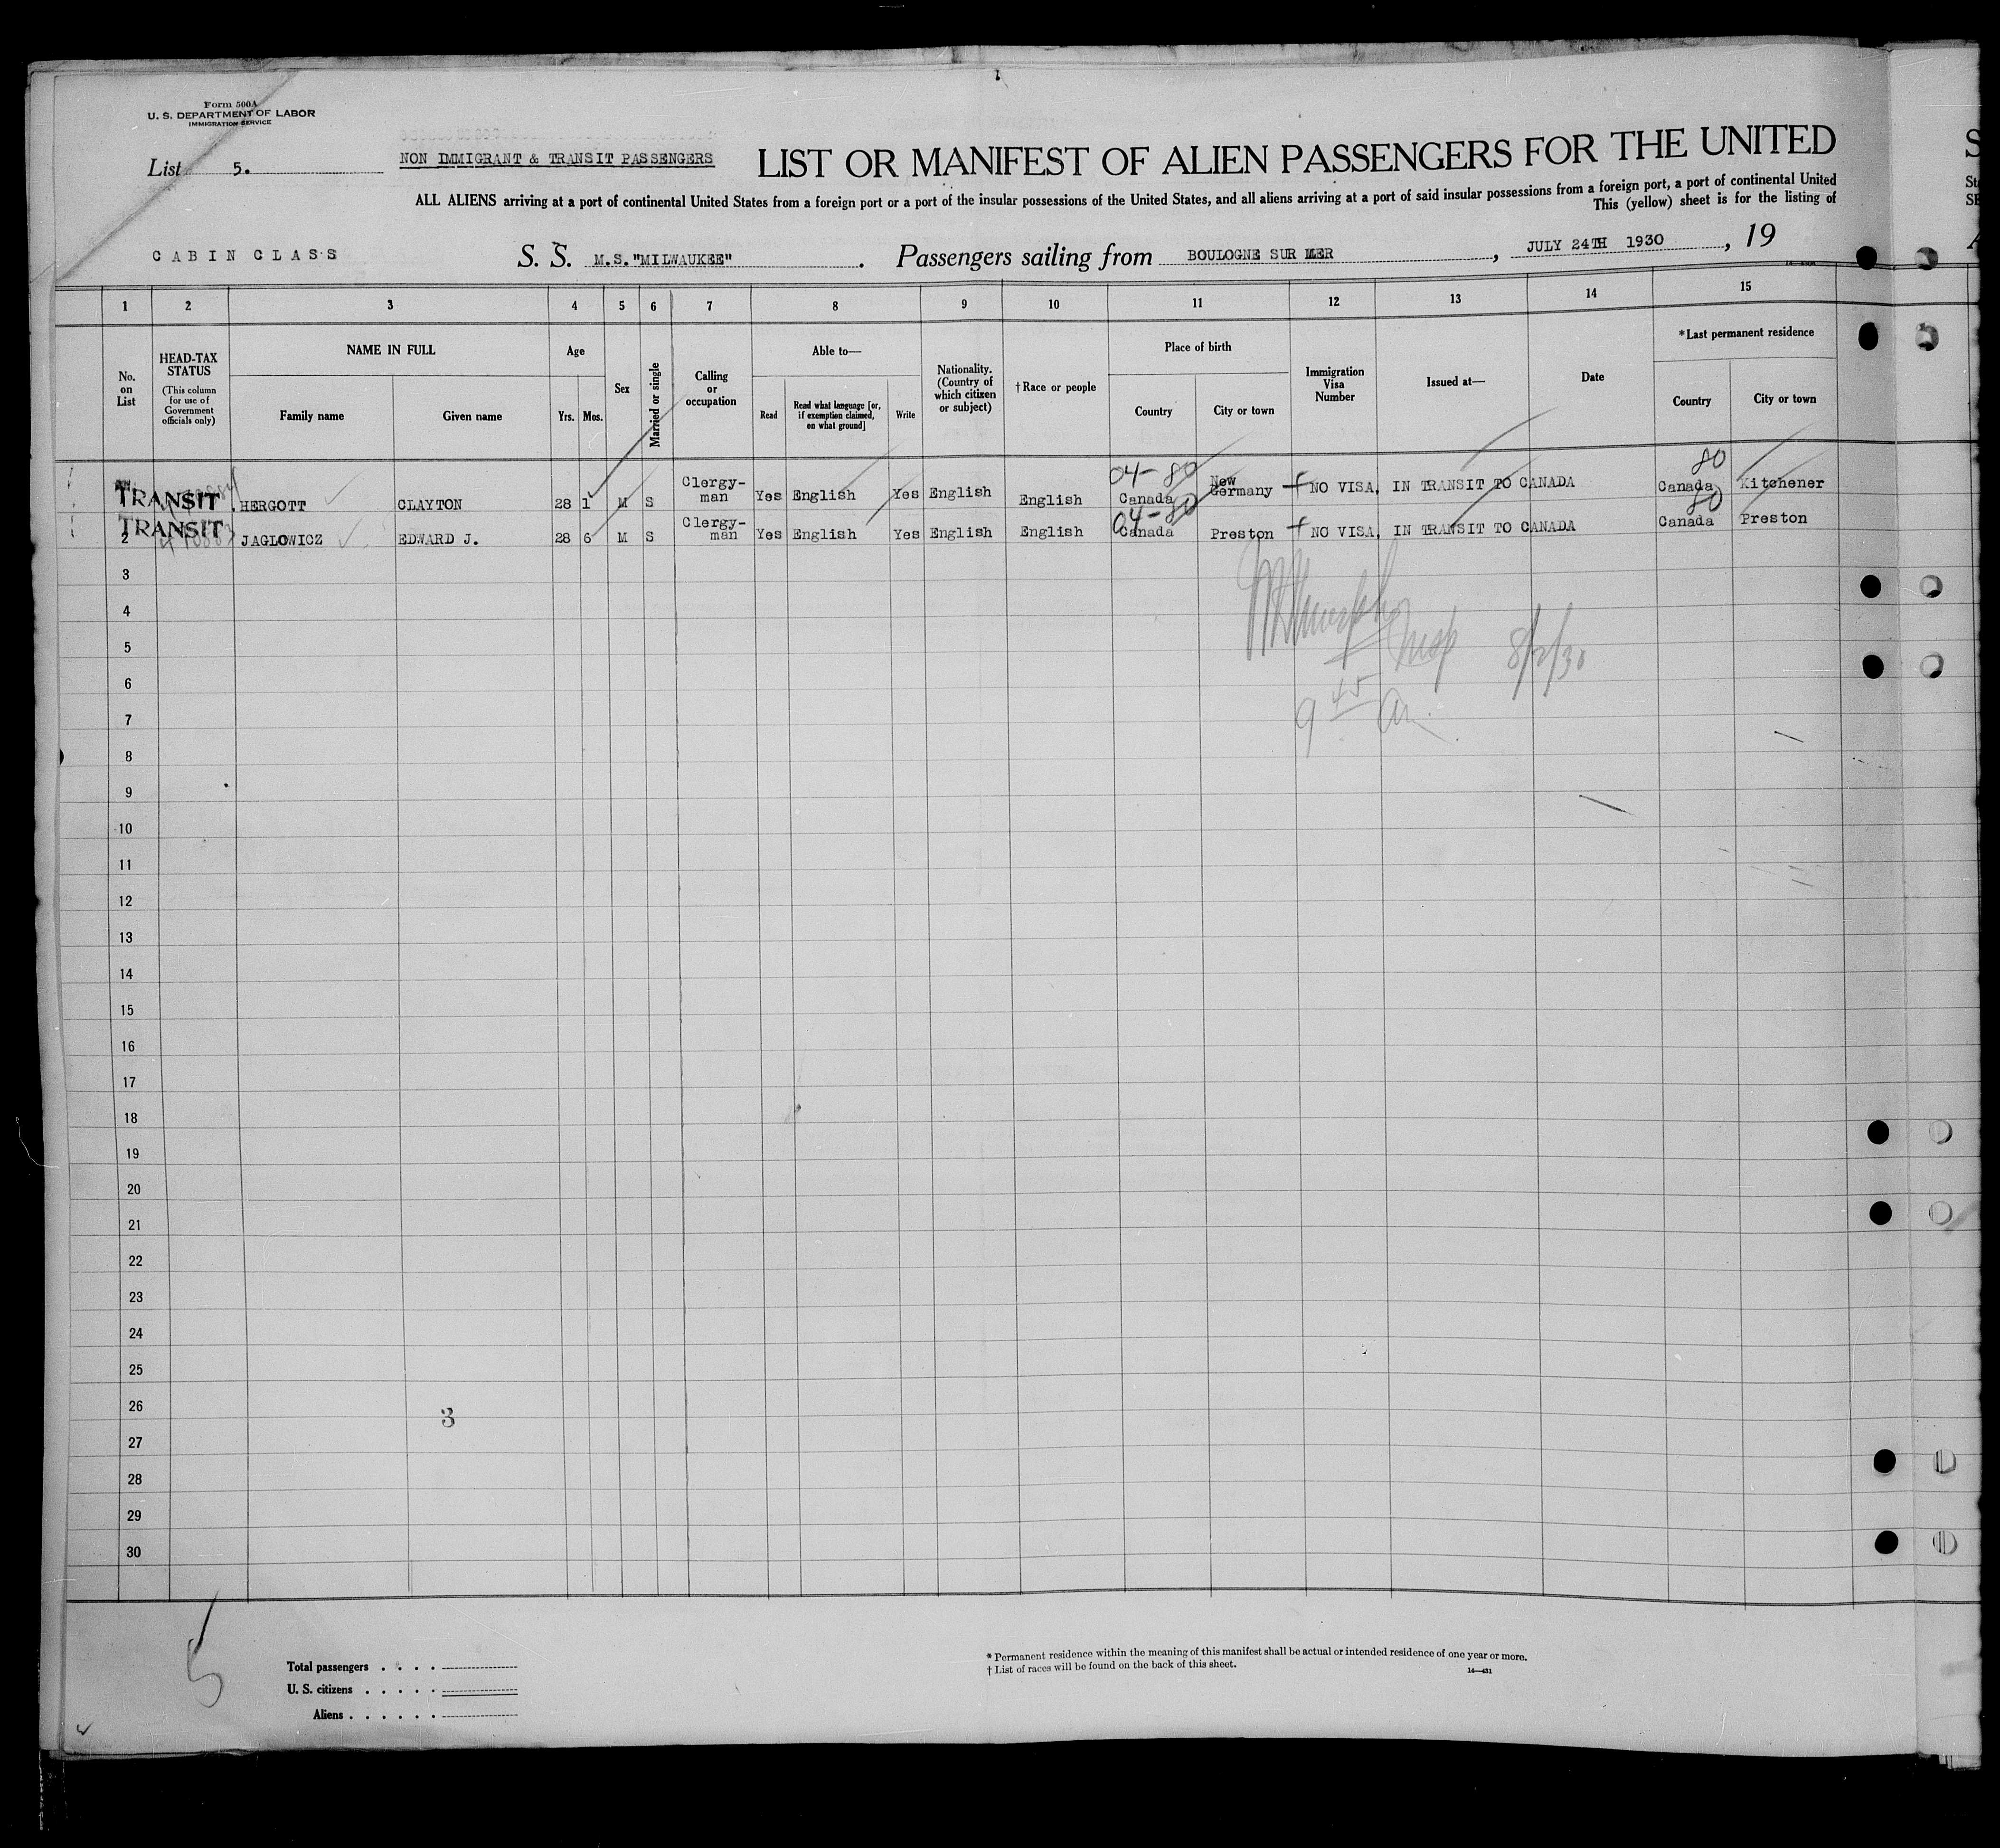 Form 500A
U. S. DEPARTMENT OF LABOR
IMMIGRATION SERVICE
List 5.
NON IMMIGRANT & TRANSIT PASSENGERS
LIST OR MANIFEST OF ALIEN PASSENGERS FOR THE UNITED
ALL ALIENS arriving at a port of continental United States from a foreign port or a port of the insular possessions of the United States, and all aliens arriving at a port of said insular possessions from a foreign port, a port of continental United
This (yellow) sheet is for the listing of
CABIN CLASS S. S. M.S."MILWAUKEE". Passengers sailing from BOULOGNE SUR MER, JULY 24TH 1930, 19
1 2 3 4 5 6 7 8 9 10 11 12 13 14 15
No. on List
HEAD-TAX STATUS
(This column for use of Government officials only)
NAME IN FULL
Family name Given name
Age
Yrs. Mos.
Sex
Married or single
Calling or occupation
Able to—
Read
Read what language [or, if exemption claimed, on what ground]
Write
Nationality. (Country of which citizen or subject)
† Race or people
Place of birth
Country City or town
Immigration Visa Number
Issued at—
Date
*Last permanent residence
Country City or town
04-80 80
TRANSIT HERGOTT CLAYTON 28 1 M S Clergy-man Yes English Yes English English Canada New Germany NO VISA, IN TRANSIT TO CANADA Canada Kitchener
04-80 80
TRANSIT
2 JAGLOWICZ EDWARD J. 28 6 M S Clergy-man Yes English Yes English English Canada Preston NO VISA, IN TRANSIT TO CANADA Canada Preston
3
4
5
Insp 8/2/30
6
7
9 45 am
8
9
10
11
12
13
14
15
16
17
18
19
20
21
22
23
24
25
26
3
27
28
29
30
5
Total passengers
U. S. citizens
Aliens
* Permanent residence within the meaning of this manifest shall be actual or intended residence of one year or more.
† List of races will be found on the back of this sheet.
14—431